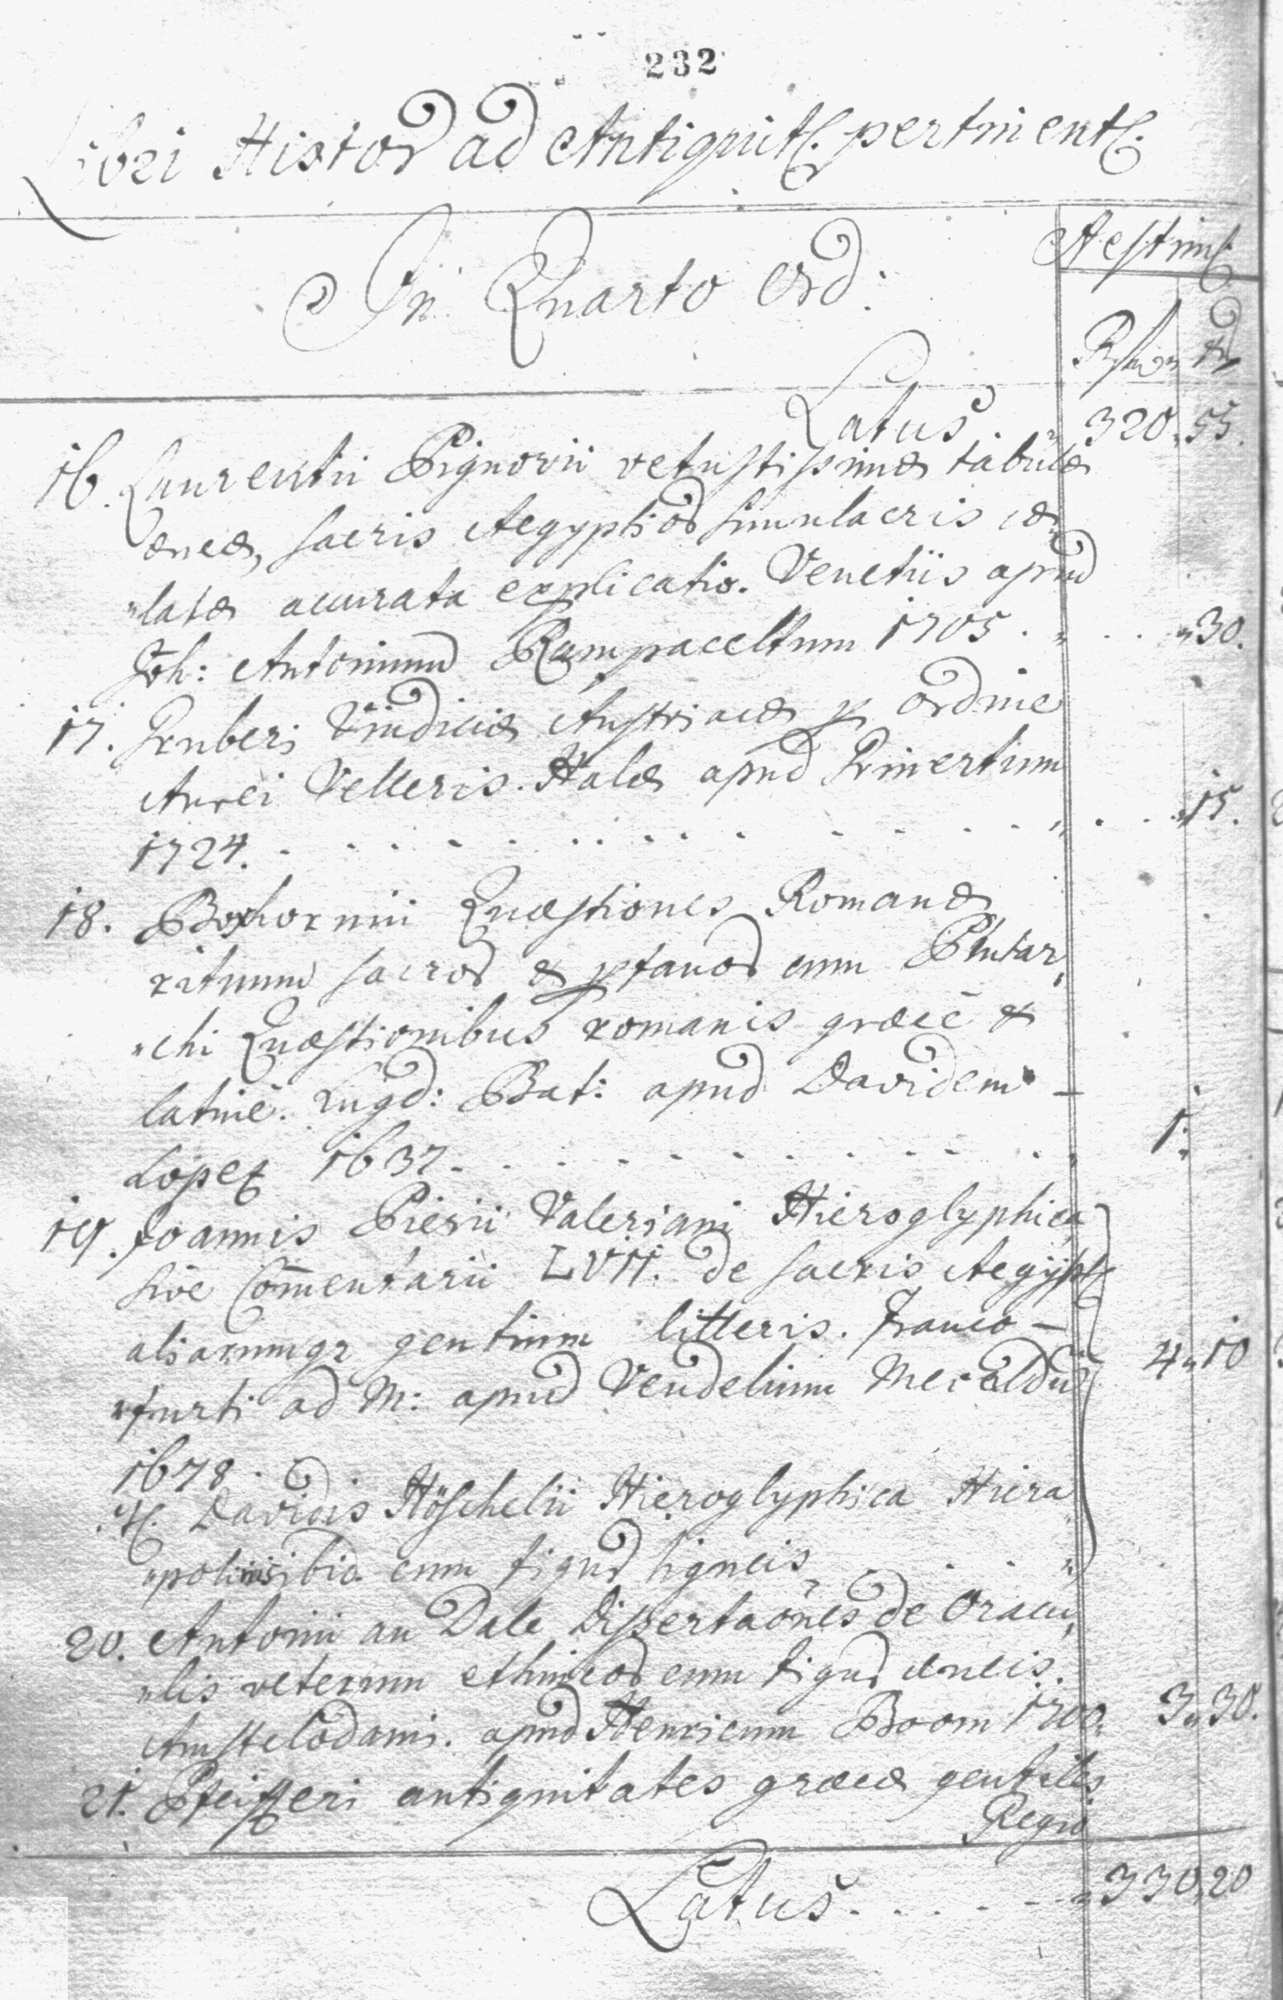 232
Libri Histor ad Antiquit. pertinent.
Aestim.
In Quarto Ord:
Latus . 320. 55.
16. Laurentii Pignorii vetustissimæ tabulæ
æneæ, sacris Aegyptior simulacris cæ
"latæ accurata explicatio. Venetiis apud
Joh: Antonium Rampacettum 1705 . " . . . " 30.
17. Gruberi Vindiciæ Austriacæ p ordine
Aurei Velleris. Halæ apud Grunertium
1724. . . . . . . . . . . " . . . " 15.
18. Boxhornii Quæstiones Romanæ
rituum sacror & pfanor cum Plutar
"chi Quæstionibus romanis græcè &
latinè. Lugd: Bat: apud Davidem –
Lopez 1637. . . . . . . . . . . " 1."
19. Joannis Pierii Valeriani Hieroglyphica
sive Com̄entarii LVII. de sacris Aegypt.
aliarumq3 gentium litteris. Franco –
"furti ad M: apud Vendelinum Meraldu
1678 .
It. Davidis Höschelii Hieroglyphica Hiera
" cum figur ligneis, . . . . " 4 " 10
20. Antonii au Dale Dissertaōnes de Oracu
"lis veterum ethnicor cum figur æneis.
Amstelodami. apud Henricum Boom 1700. 3 " 30.
21. Pfeifferi antiquitates græcæ gentiles
Regio
Latus . . . . . . " 330. 20